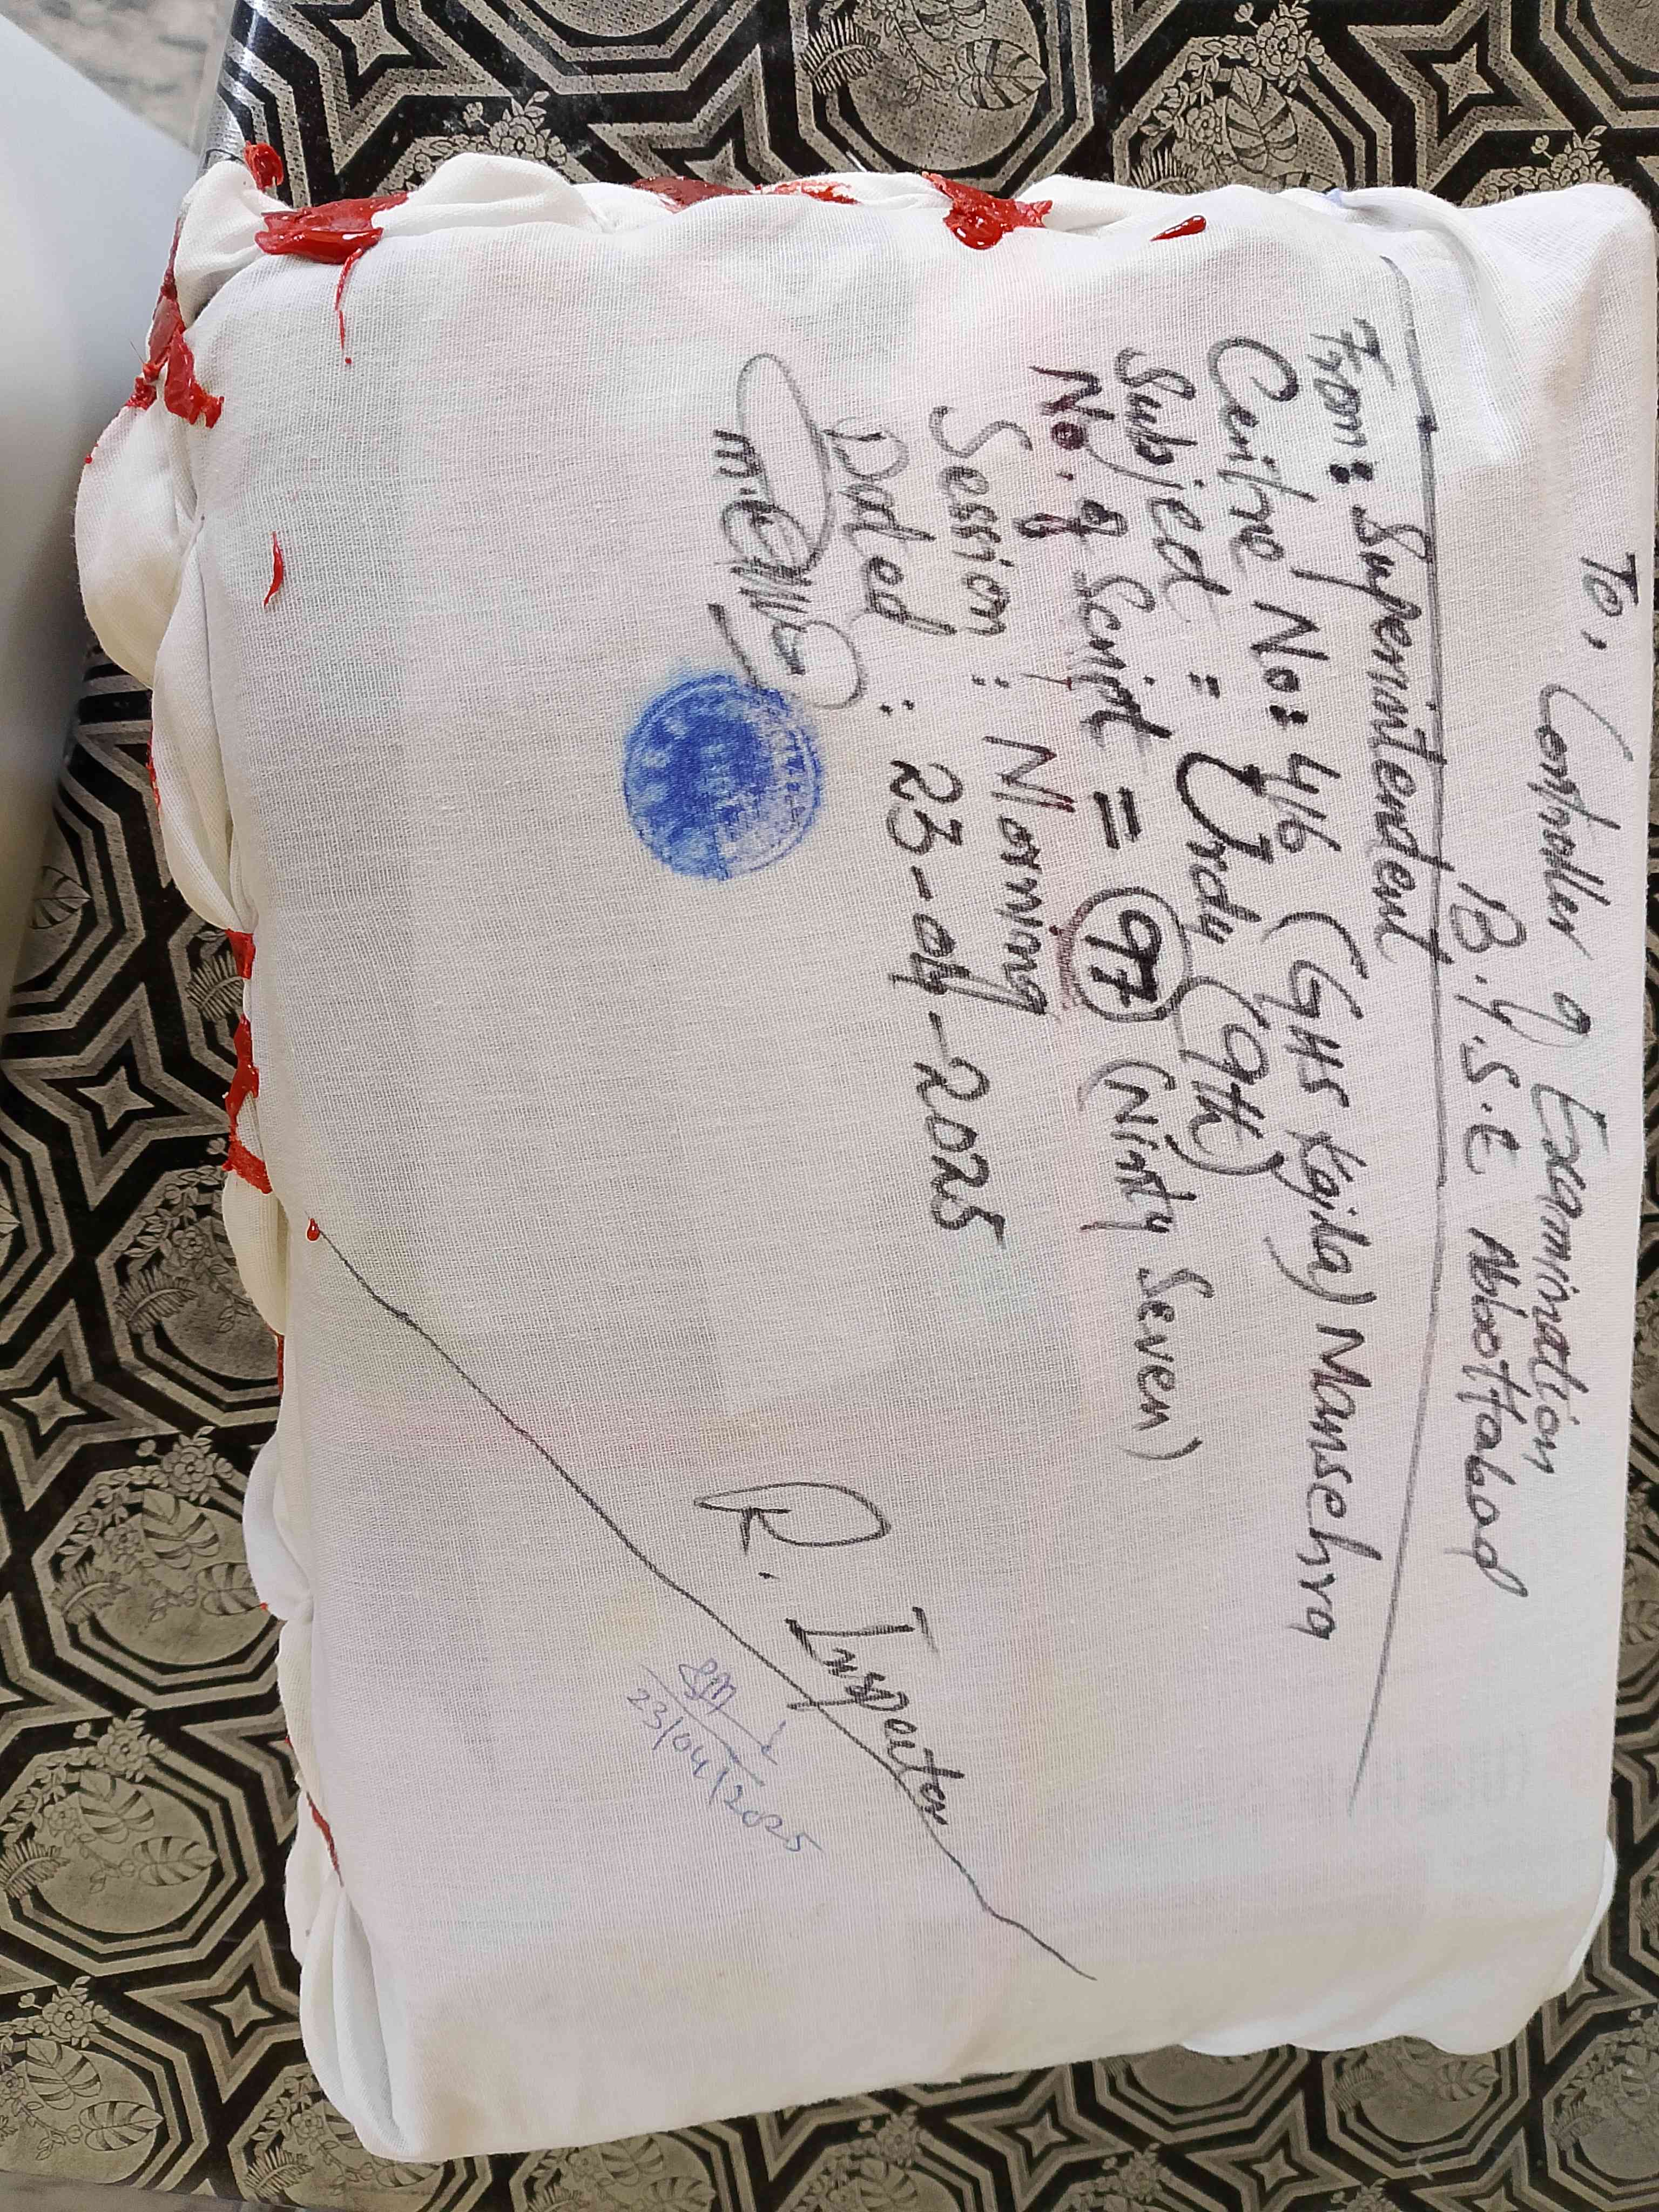 To, Controller of Examination
B.I.S.E Abbottabad
From: Superintendent
Centre No: 446 (GHS Kgila) Mansehra
Subject : Urdu (9th)
No. of Script = 97 (Ninty Seven)
Session : Morning
Dated : 23-04-2025
R. Inspector
23/04/2025